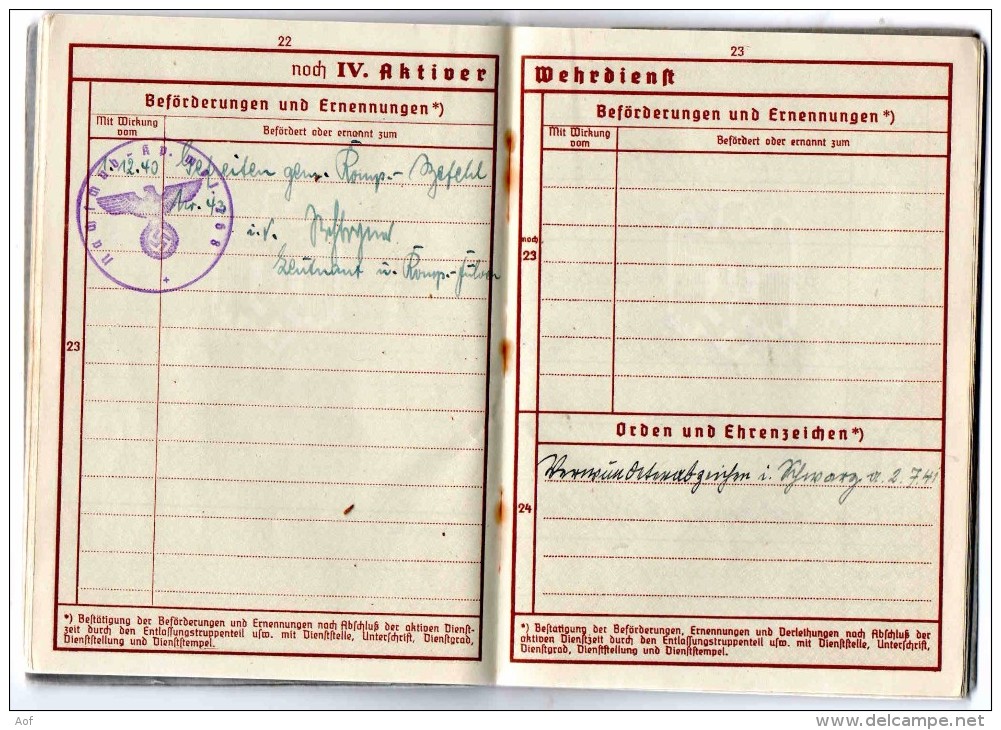 22
noch IV. Aktiver
Beförderungen und Ernennungen*)
Mit Wirkung vom
Befördert oder ernannt zum
1.12.40 Gefreiten gem. Komp.- Befehl
Nr. 43
i.V.
Leutnant u. Komp.-Führer
23
*) Bestätigung der Beförderungen und Ernennungen nach Abschluß der aktiven Dienst-
zeit durch den Entlassungstruppenteil usw. mit Dienststelle, Unterschrift, Dienstgrad,
Dienststellung und Dienststempel.
23
Wehrdienst
Beförderungen und Ernennungen*)
Mit Wirkung vom
Befördert oder ernannt zum
noch
23
Orden und Ehrenzeichen*)
Verwundetenabzeichen i. Schwarz a. 2.7.41
24
*) Bestätigung der Beförderungen, Ernennungen und Verleihungen nach Abschluß der
aktiven Dienstzeit durch den Entlassungstruppenteil usw. mit Dienststelle, Unterschrift,
Dienstgrad, Dienststellung und Dienststempel.
Aof
www.delcampe.net